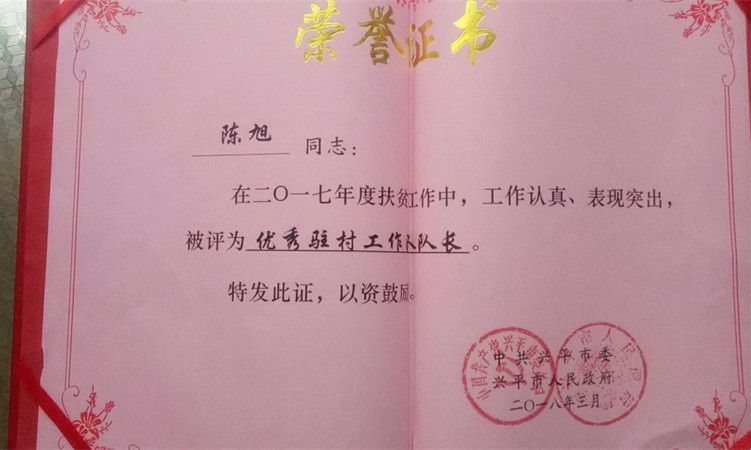 荣誉证书
陈旭 同志：
在二〇一七年度扶贫工作中，工作认真、表现突出，
被评为优秀驻村工作队队长。
特发此证，以资鼓励。
中共兴平市委
兴平市人民政府
二〇一八年三月